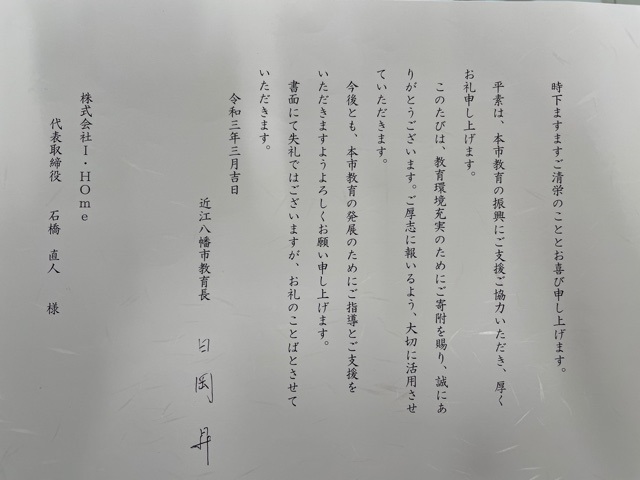 時下ますますご清栄のこととお喜び申し上げます。
平素は、本市教育の振興にご支援ご協力いただき、厚く
お礼申し上げます。
このたびは、教育環境充実のためにご寄附を賜り、誠にあ
りがとうございます。ご厚志に報いるよう、大切に活用させ
ていただきます。
今後とも、本市教育の発展のためにご指導とご支援を
いただきますようよろしくお願い申し上げます。
書面にて失礼ではございますが、お礼のことばとさせて
いただきます。
令和三年三月吉日
近江八幡市教育長 日岡 昇
株式会社Ｉ・ＨＯｍｅ
代表取締役 石橋 直人 様